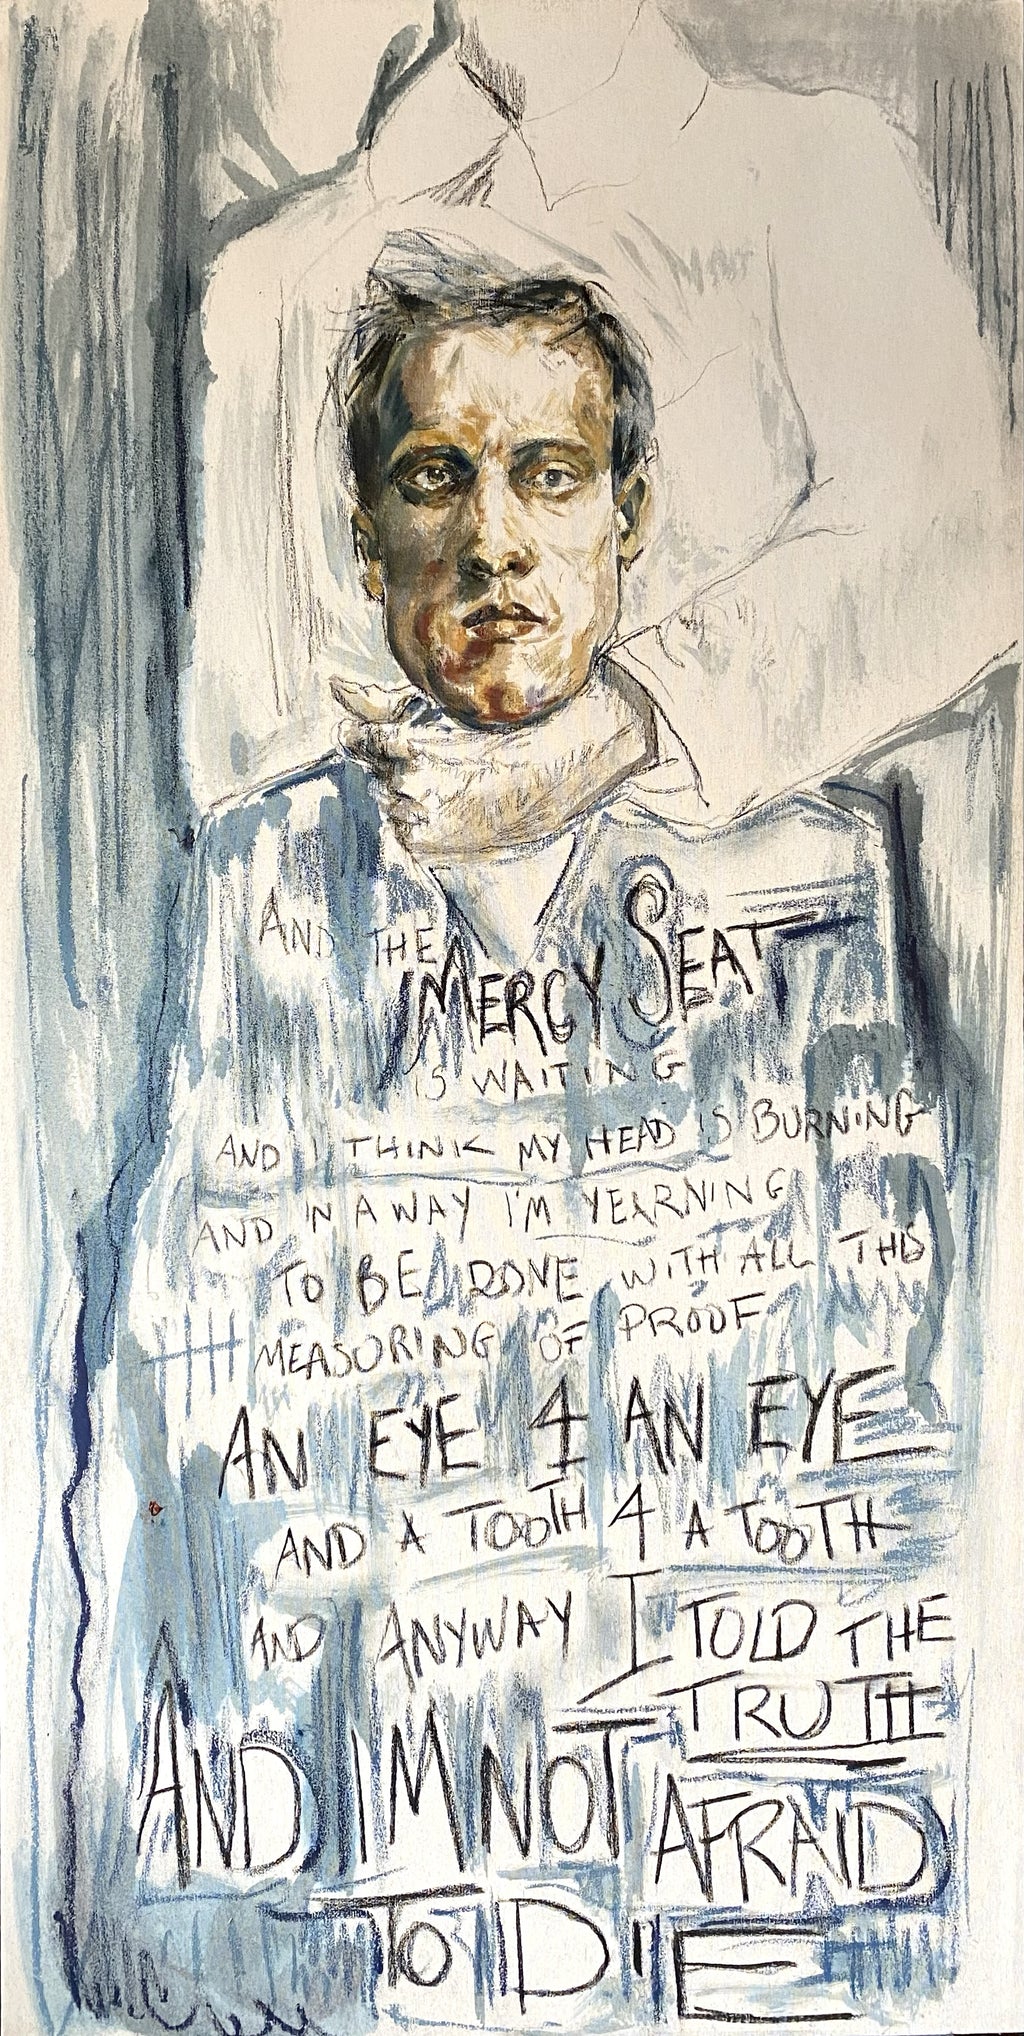 AND THE MERCY SEAT
IS WAITING
AND I THINK MY HEAD IS BURNING
AND IN A WAY I'M YEARNING
TO BE DONE WITH ALL THIS
MEASURING OF PROOF
AN EYE 4 AN EYE
AND A TOOTH 4 A TOOTH
AND ANYWAY I TOLD THE
TRUTH
AND I'M NOT AFRAID
TO DIE